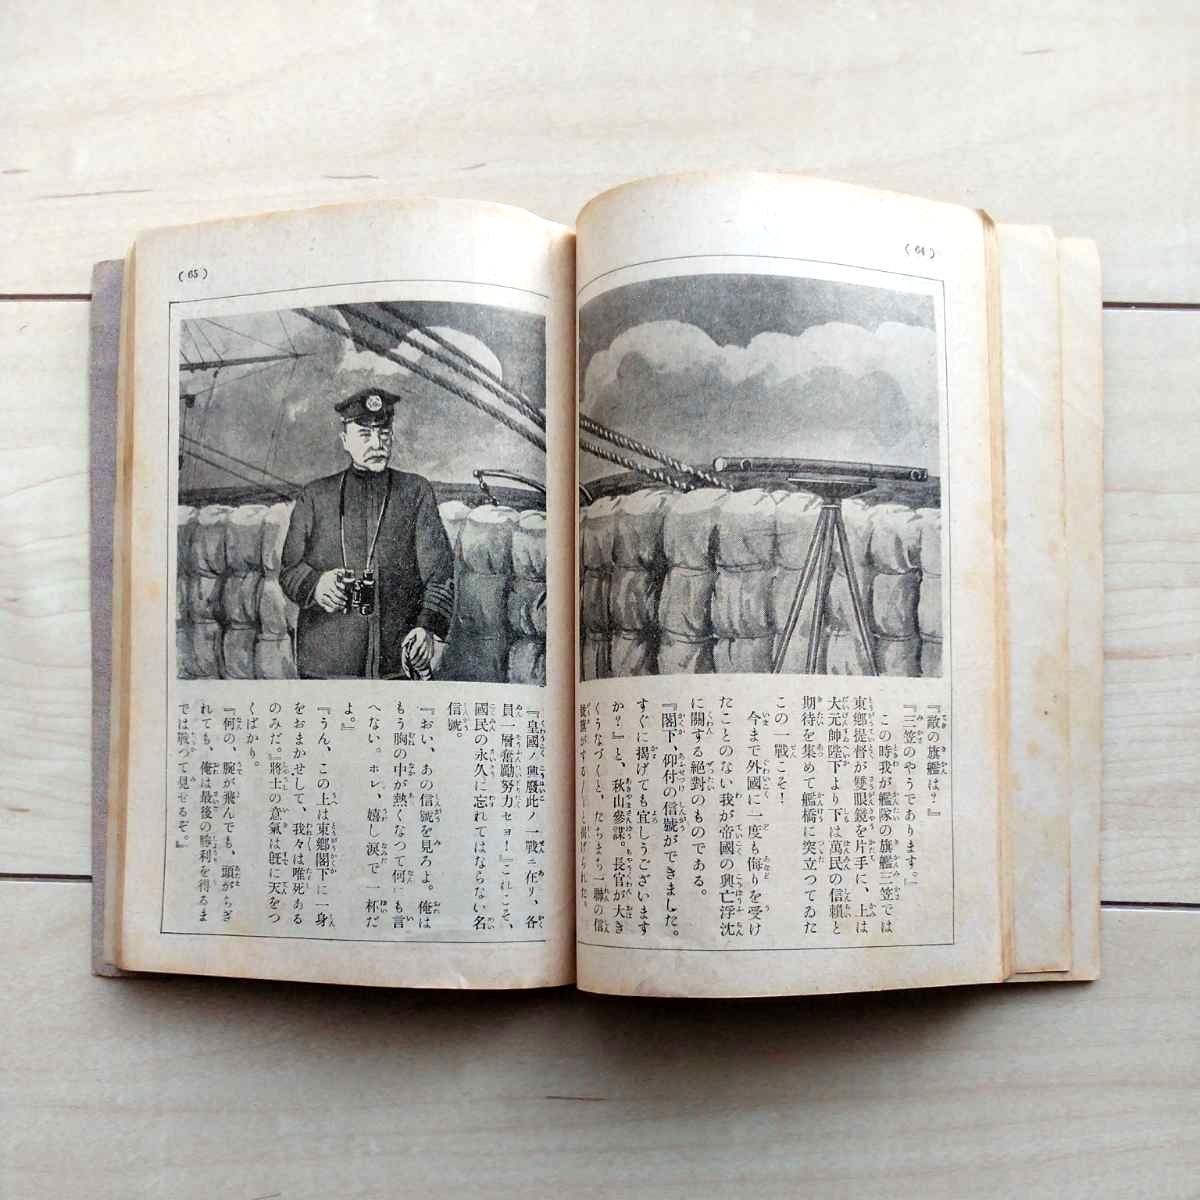 (64)
『敵の旗艦は？』
『三笠のやうであります。』
この時我が艦隊の旗艦三笠では
東鄕提督が雙眼鏡を片手に、上は
大元帥陛下より下は萬民の信賴と
期待を集めて艦橋に突立つてゐた
この一戰こそ！
今まで外國に一度も侮りを受け
たことのない我が帝國の興亡浮沈
に關する絕對のものである。
『閣下、仰付の信號ができました。
すぐに揭げても宜しうございます
か？』と、秋山參謀。長官が大き
くうなづくと、たちまち一聯の信
(65)
『皇國ノ興廢此ノ一戰ニ在リ、各
員一層奮勵努力セヨ！』これこそ、
國民の永久に忘れてはならない名
信號。
『おい、あの信號を見ろよ。俺は
もう胸の中が熱くなつて何にも言
へない。ホレ、嬉し淚で一杯だ
よ。』
『うん、この上は東鄕閣下に一身
をおまかせして、我々は唯死ある
のみだ。』將士の意氣は旣に天をつ
くばかり。
『何の、腕が飛んでも、頭がちぎ
れても、俺は最後の勝利を得るま
では戰つて見せるぞ。』